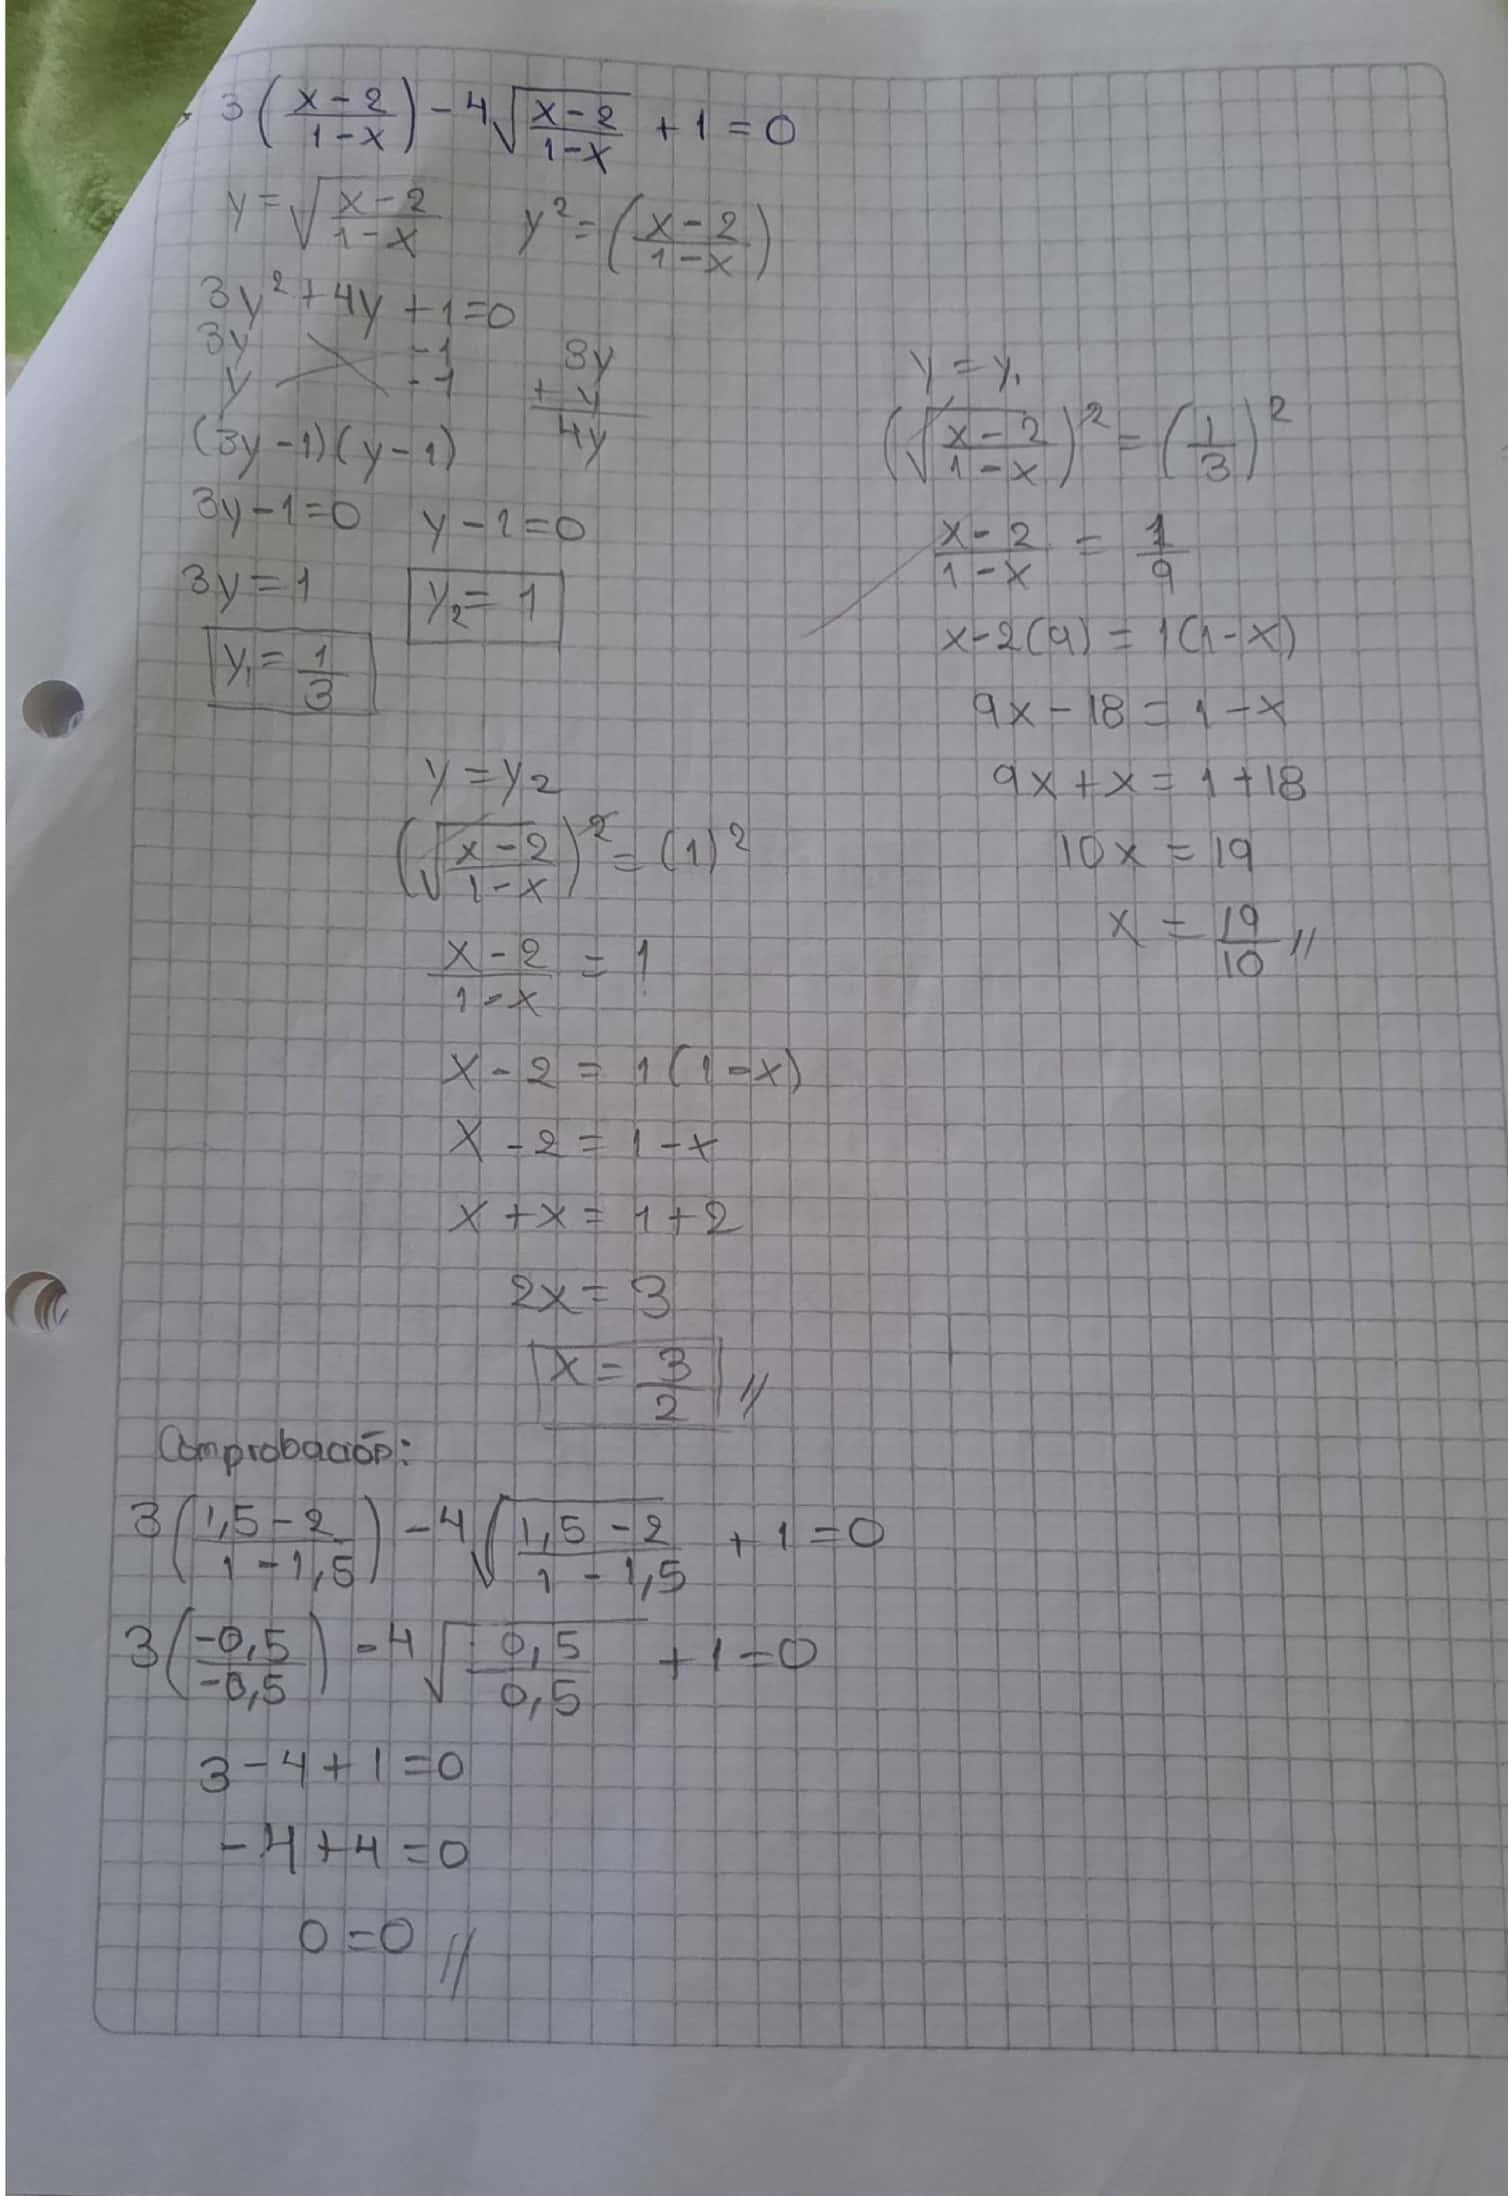 3(x-2/1-x) - 4√(x-2/1-x) + 1 = 0
y = √(x-2/1-x)   y² = (x-2/1-x)
3y² + 4y + 1 = 0
3y   -1   3y
y   -1   + y
(3y-1)(y-1)   4y
3y-1=0   y-1=0
3y = 1   y₂ = 1
y₁ = 1/3
y = y₁
(√(x-2/1-x))² = (1/3)²
x-2/1-x = 1/9
x-2(9) = 1(1-x)
9x-18 = 1-x
9x+x = 1+18
10x = 19
x = 19/10 //
y = y₂
(√(x-2/1-x))² = (1)²
x-2/1-x = 1
x-2 = 1(1-x)
x-2 = 1-x
x+x = 1+2
2x = 3
x = 3/2 //
Comprobación:
3(1,5-2/1-1,5) - 4√(1,5-2/1-1,5) + 1 = 0
3(-0,5/-0,5) - 4√(-0,5/0,5) + 1 = 0
3-4+1=0
-4+4=0
0=0 //